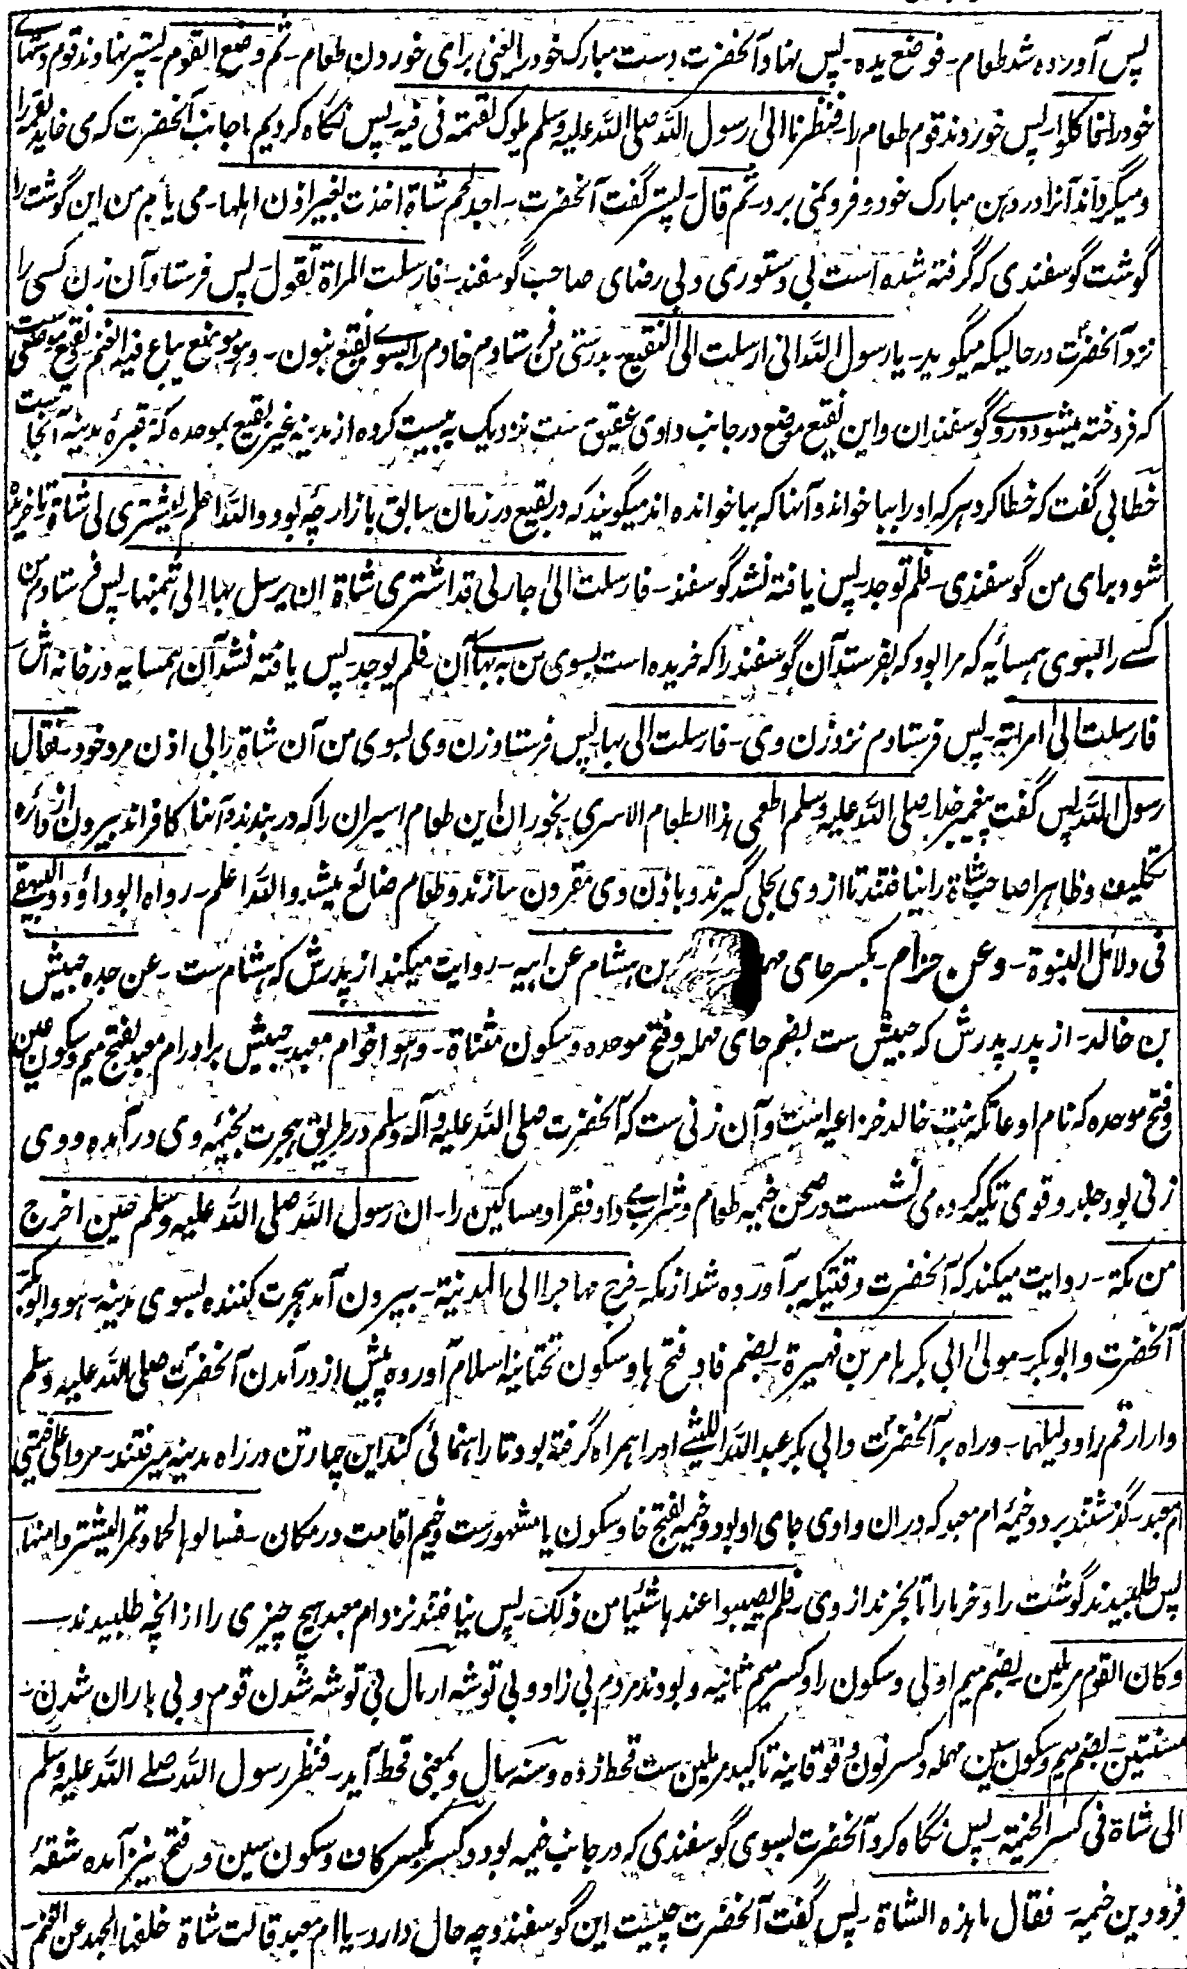 پس آورده شد طعام۔ فوضع یده۔ پس نهاد آنحضرت دست مبارک خود را یعنی برای خوردن طعام۔ ثم وضع القوم۔ پستر نهادند قوم دستهای
خود را۔ فاکلوا۔ پس خوردند قوم طعام را۔ فنظرنا الی رسول الله صلی الله علیه وسلم یلوک لقمته فی فیه۔ پس نگاه کردیم ما جانب آنحضرت که می خاید لقمه را
و میگرداند آنرا در دهن مبارک خود و فرو نمی برد۔ ثم قال۔ پستر گفت آنحضرت۔ اجد لحم شاة اخذت بغیر اذن اهلها۔ می یابم من این گوشت را
گوشت گوسفندی که گرفته شده است بی دستوری و بی رضای صاحب گوسفند۔ فارسلت المراة تقول۔ پس فرستاد آن زن کسی را
نزد آنحضرت در حالیکه میگوید۔ یا رسول الله انی ارسلت الی النقیع۔ بدرستی من فرستادم خادم را بسوی نقیع بنون۔ وهو موضع یباع فیه الغنم۔ نقیع موضعی ست
که فروخته میشود دروے گوسفندان و این نقیع موضع در جانب وادی عقیق ست نزدیک به بیست کروه از مدینه غیر بقیع بموحده که مقبرهٔ مدینه آنجا ست
خطابی گفت که خطا کرد هر که او را ببا خواند و آنها که ببا خوانده اند میگویند که در بقیع در زمان سابق بازارچه بود و الله اعلم۔ لیشتری لی شاة۔ تا خریده
شود برای من گوسفندی۔ فلم توجد۔ پس یافته نشد گوسفند۔ فارسلت الی جار لی قد اشتری شاة ان یرسل بها الی بثمنها۔ پس فرستادم من
کسے را بسوی همسایهٔ که مرا بود که بفرستد آن گوسفند را که خریده است بسوی من به بهای آن۔ فلم یوجد۔ پس یافته نشد آن همسایه در خانه اش
فارسلت الی امراته۔ پس فرستادم نزد زن وی۔ فارسلت الی بها۔ پس فرستاد زن وی بسوی من آن شاة را بی اذن مرد خود۔ فقال
رسول الله۔ پس گفت پیغمبر خدا صلی الله علیه وسلم اطعمی هذا الطعام الاسری۔ بخوران این طعام اسیران را که در بند ندو آنها کافراند بیرون از دائرهٔ
تکلیف و ظاهرا صاحب شاة را نیافتند تا از وی بحلی گیرند و باذن وی مقرون سازند و طعام ضائع میشد و الله اعلم۔ رواه ابوداؤد و البیهقے
فی دلائل النبوة۔ وعن حزام۔ بکسر حای مهمله بن هشام عن ابیه۔ روایت میکند از پدرش که هشام ست۔ عن جده حبیش
بن خالد۔ از پدر پدرش که حبیش ست بضم حای مهمله و فتح موحده و سکون مثناة۔ وهو اخو ام معبد۔ حبیش برادر ام معبد بفتح میم و سکون عین
و فتح موحده که نام او عاتکه بنت خالد خزاعیه است و آن زنی ست که آنحضرت صلی الله علیه وآله وسلم در طریق هجرت بخیمهٔ وی در آمده و وی
زنی بود جلد و قوی تکیه کرده می نشست در صحن خیمه طعام و شراب مے داد فقرا و مساکین را۔ ان رسول الله صلی الله علیه وسلم حین اخرج
من مکة۔ روایت میکند که آنحضرت وقتیکه برآورده شد از مکه۔ خرج مهاجرا الی المدینة۔ بیرون آمد هجرت کننده بسوی مدینه۔ هو و ابوبکر
آنحضرت و ابوبکر۔ و مولی ابی بکر عامر بن فهیرة۔ بضم فا و فتح ها و سکون تحتانیه اسلام آورده پیش از در آمدن آنحضرت صلی الله علیه وسلم
دار ارقم را۔ و دلیلهما۔ و راه بر آنحضرت و ابی بکر عبد الله اللیثی او را همراه گرفته بود تا راهنمائی کند این چهار تن در راه مدینه میرفتند۔ مروا علی خیمتی
ام معبد۔ گذشتند بر دو خیمهٔ ام معبد که در ان وادی جای او بود و خیمه بفتح خا و سکون یا مشهور ست و خیم اقامت در مکان۔ فسالوها لحما و تمرا لیشتروا منها
پس طلبیدند گوشت را و خرما را تا بخرند از وی۔ فلم یصیبوا عندها شئیا من ذلک۔ پس نیافتند نزد ام معبد هیچ چیزی را از انچه طلبیدند۔
وکان القوم مرملین۔ بضم میم اولی و سکون را و کسر میم ثانیه و بودند مردم بی زاد و بی توشه ارمال بی توشه شدن قوم و بی باران شدن۔
مسنتین۔ بضم میم و سکون سین مهمله و کسر نون و فوقانیه تاکید مرملین ست قحط زده و سنه سال و بمعنی قحط آید۔ فنظر رسول الله صلے الله علیه وسلم
الی شاة فی کسر الخیمة۔ پس نگاه کرد آنحضرت بسوی گوسفندی که در جانب خیمه بود و کسر بکسر کاف و سکون سین و فتح نیز آمده شقهٔ
فرودین خیمه۔ فقال ما هذه الشاة۔ پس گفت آنحضرت چیست این گوسفند و چه حال دارد۔ یا ام معبد قالت شاة خلفها الجهد عن الغنم۔